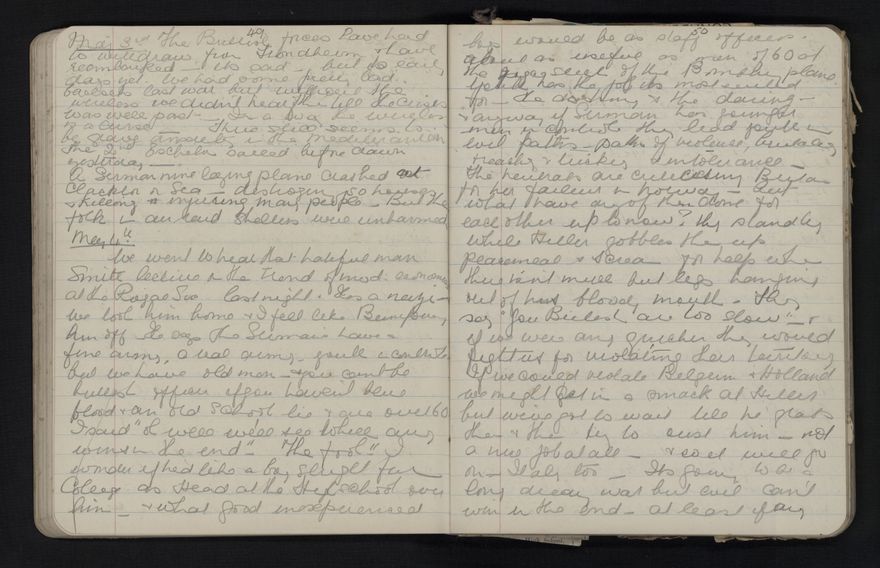 May 3rd The British forces have had
to withdraw from Trondheim & have
reembarked its said - but its early
days yet. We had some pretty bad
last war but without the
wireless we didn't hear the till the crisis
was past - In a way the wireless
is a curse - Things seems to
be grave anxiety in the Mediterranean
The 2nd Echelon sailed before dawn
yesterday -
A German mine laying plane crashed at
Clackton on Sea - destroying 50 houses
& killing & injuring many people - But the
folk in air raid shelters were unharmed
May 4th
We went to hear that hateful man
Smith lecture on the Trend of mod. economics
at the Royal Soc. last night. Hes a nazi -
we took him home & I feel like
him off. He says The Germans have a
fine army, a real army, youth in control
but we have old men - & you cant be
British officer if you haven't blue
blood & an old School tie & are over 60
I said "Oh well we'll see who'll
win in the end" - "The fool" I
wonder if he'd like a boy straight from
College as Head at the High School over
him - & what good inexperienced
boys would be as staff officers. so
about as useful as men of 60 at
the of the Bombing plane
Youth has the job its most suited
for - the & the daring -
& anyway if Germany has younger
men in control they lead youth in
evil paths - paths of violence, brutality
treachery & & intolerance -
The neutrals are criticising Britain
for her failure in Norway - but
what have any of them done for
each other up to now? They stand by
while Hitler gobbles them up
piecemeal & scream for help when
there isn't much but legs hanging
out of his bloody mouth - They
say "You British are too slow" - &
if we were any quicker they would
fight us for violating their territory
If we could violate Belgium & Holland
we might get in a smack at Hitler
but we've got to wait till he grabs
them & then try to oust him - not
a nice job at all - & so it will go
on - Italy too - Its going to be a
long dreary war but evil can't
win in the end - at least if any